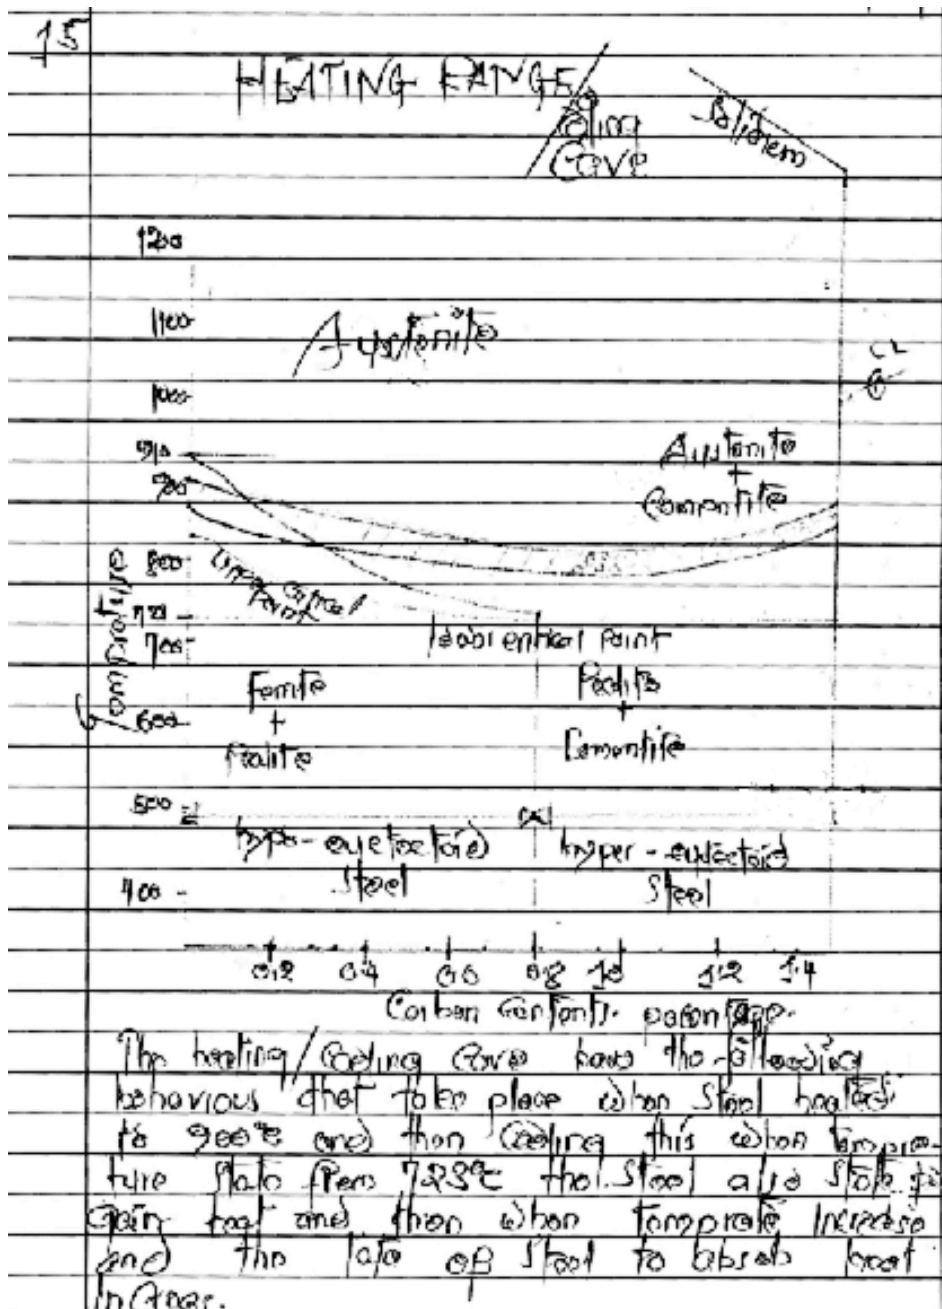 15
HEATING RANGE
Coling
Cave
Solidiem
1200
1100
Austenite
1000
910
900
Austenite
+
Comentite
800
Upper Critical
Point
Tempreture
723
700
point
Ferrite
+
Pealite
Pealite
+
Comentite
600
500
hypo-eutectoid
Steel
hyper-eutectoid
Steel
400
0.2 0.4 0.6 0.8 1.0 1.2 1.4
Carbon Contents.
The heating/Cooling Cave have the following
behavious that take place when Steel heated
to 900°c and then Cooling this when tempre-
ture State from 723°c the Steel also State to
Gain heat and then when temprate Increase
and the rate of Steel to absorb heat
Increase.